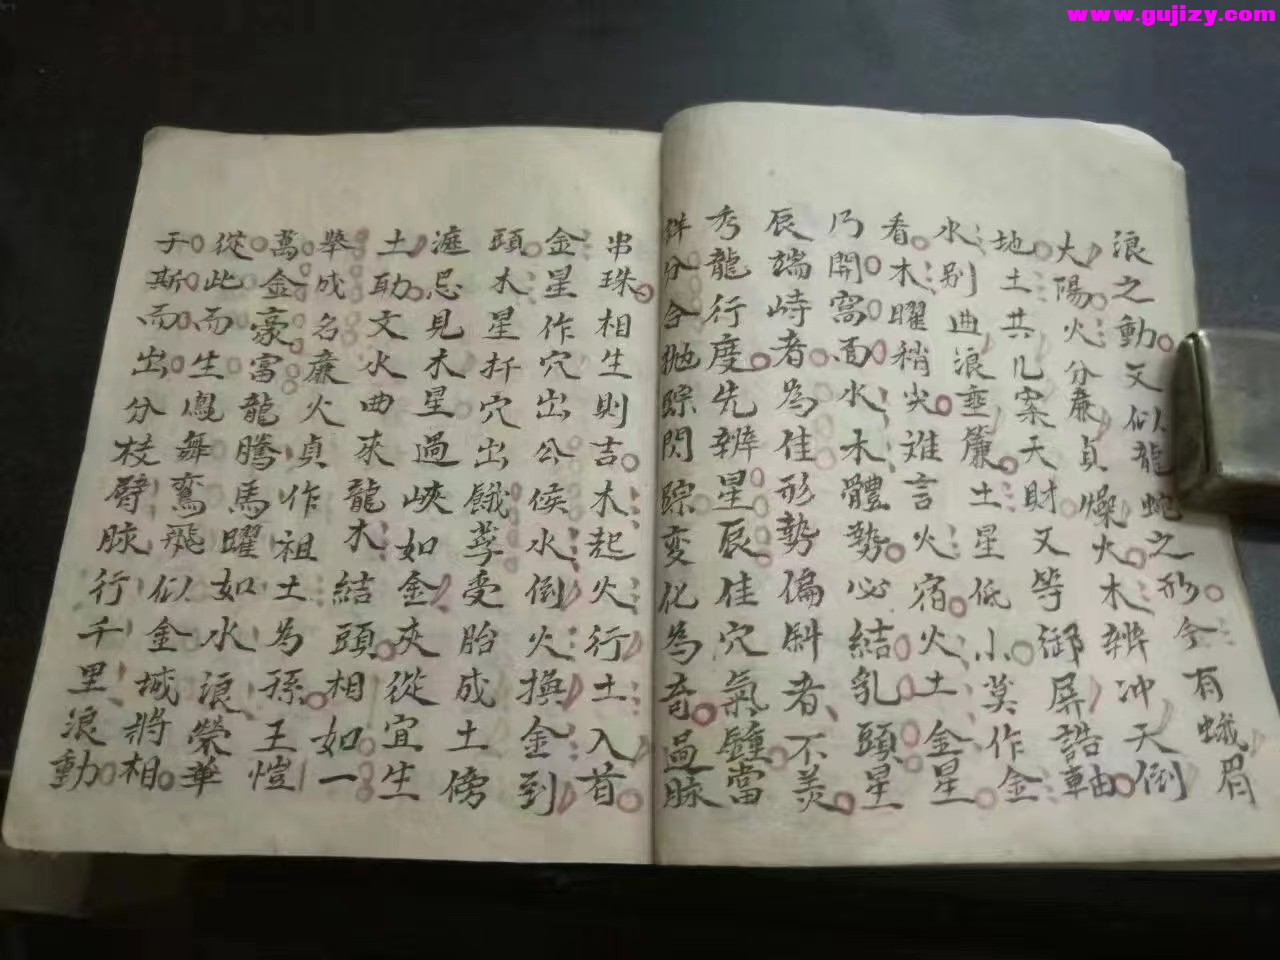 www.gujizy.com
浪之動又似龍蛇之形今有蛾眉
太陽火分廉貞燥火木辨冲天倒
地土共几案天財又等御屏誥軸
水别曲浪垂簾土星低小莫作金
看木曜稍尖难言火宿火土金星
乃開窩面水木體勢必結乳頭星
辰端峙者為佳形勢偏斜者不羡
秀龍行度先辨星辰佳穴氣鍾當
詳分合抛踪閃踪变化為奇過脉
串珠相生則吉木起火行土入首
金星作穴出公侯水倒火撰金到
頭木星扦穴出餓莩受胎成土傍
滙忌見木星過峽如金夾從宜生
土助文火曲來龍木結頭相如一
舉成名廉火貞作祖土為孫王愷
萬金豪富龍騰馬曜如水浪榮華
從此而生鳳舞鸞飛似金城將相
于斯而出分枝臂脉行千里浪動